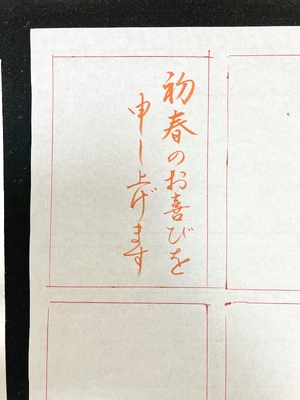 初春のお喜びを
申し上げます